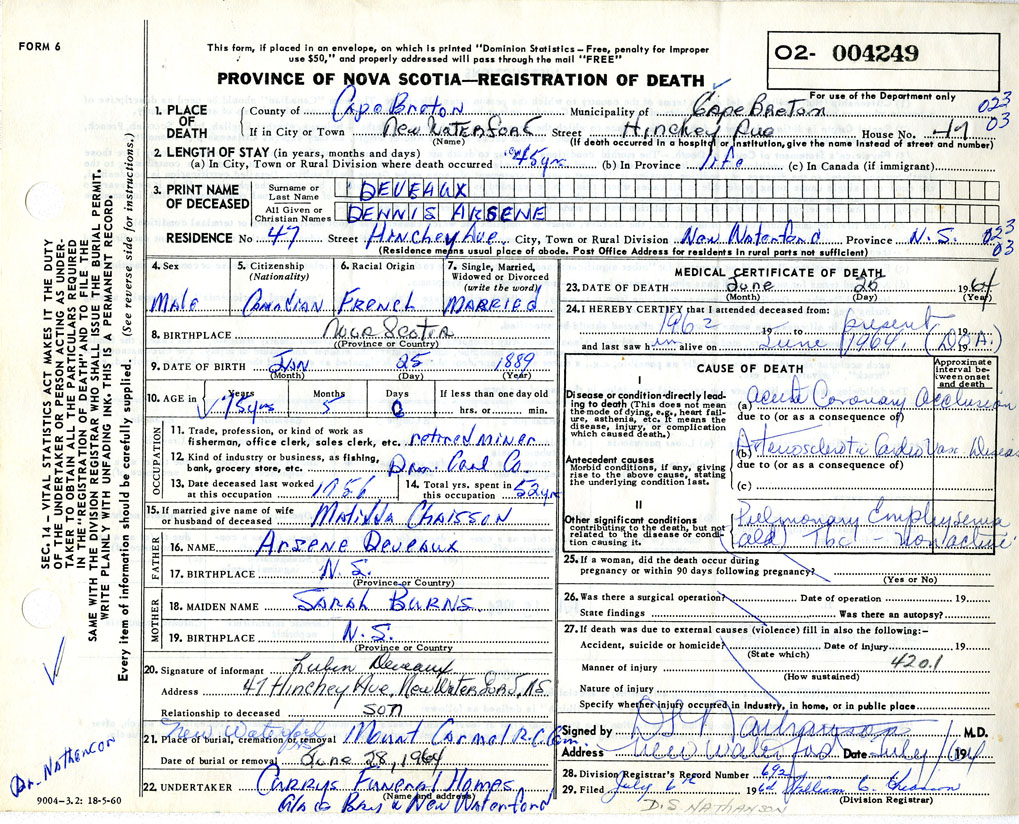 FORM 6
This form, if placed in an envelope, on which is printed "Dominion Statistics – Free, penalty for improper
use $50," and properly addressed will pass through the mail "FREE"
PROVINCE OF NOVA SCOTIA—REGISTRATION OF DEATH
O2- 004249
For use of the Department only
1. PLACE OF DEATH County of Cape Breton Municipality of Cape Breton 023
If in City or Town New Waterford Street Hinchey Ave House No. 47 03
(Name) (If death occurred in a hospital or institution, give the name instead of street and number)
2. LENGTH OF STAY (in years, months and days)
(a) In City, Town or Rural Division where death occurred 45 yrs (b) In Province life (c) In Canada (if immigrant)
3. PRINT NAME OF DECEASED Surname or Last Name DEVEAUX
All Given or Christian Names DENNIS ARSENE
RESIDENCE No 47 Street Hinchey Ave. City, Town or Rural Division New Waterford Province N.S. 023
03
(Residence means usual place of abode. Post Office Address for residents in rural parts not sufficient)
4. Sex 5. Citizenship (Nationality) 6. Racial Origin 7. Single, Married, Widowed or Divorced (write the word)
Male Canadian French Married
8. BIRTHPLACE Nova Scotia
(Province or Country)
9. DATE OF BIRTH Jan 25 1889
(Month) (Day) (Year)
10. AGE in Years Months Days If less than one day old
75 yrs 5 0 hrs. or min.
OCCUPATION
11. Trade, profession, or kind of work as
fisherman, office clerk, sales clerk, etc. retired miner
12. Kind of industry or business, as fishing,
bank, grocery store, etc. Dom. Coal Co.
13. Date deceased last worked at this occupation 1956 14. Total yrs. spent in this occupation 52 yrs
15. If married give name of wife
or husband of deceased Matilda Chaisson
FATHER
16. NAME Arsene Deveaux
17. BIRTHPLACE N.S.
(Province or Country)
MOTHER
18. MAIDEN NAME Sarah Burns
19. BIRTHPLACE N.S.
(Province or Country)
20. Signature of informant Lubin Deveaux
Address 47 Hinchey Ave, New Waterford, NS
Relationship to deceased son
New Waterford NS
21. Place of burial, cremation or removal Mount Carmel R.C. Cem.
Date of burial or removal June 28, 1964
22. UNDERTAKER Currys Funeral Homes
(Name and address)
Glace Bay & New Waterford
MEDICAL CERTIFICATE OF DEATH
23. DATE OF DEATH June 25 1964
(Month) (Day) (Year)
24. I HEREBY CERTIFY that I attended deceased from:
1962 19 to present 19
and last saw him alive on June 1964. 19 (D.O.A.)
CAUSE OF DEATH
Approximate interval between onset and death
I
Disease or condition directly leading to death (This does not mean the mode of dying, e.g., heart failure, asthenia, etc. It means the disease, injury, or complication which caused death.)
(a) Acute Coronary Occlusion
due to (or as a consequence of)
Antecedent causes
Morbid conditions, if any, giving rise to the above cause, stating the underlying condition last.
(b) Arteriosclerotic Cardio Vasc. Disease
due to (or as a consequence of)
(c)
II
Other significant conditions
contributing to the death, but not related to the disease or condition causing it.
Pulmonary Emphysema
(old) Tbc - nonactive
25. If a woman, did the death occur during
pregnancy or within 90 days following pregnancy?
(Yes or No)
26. Was there a surgical operation? Date of operation 19
State findings Was there an autopsy?
27. If death was due to external causes (violence) fill in also the following:–
Accident, suicide or homicide? Date of injury 19
(State which)
Manner of injury 420.1
(How sustained)
Nature of injury
Specify whether injury occurred in industry, in home, or in public place
Signed by D S Nathanson M.D.
Address New Waterford Date July 1 1964
28. Division Registrar's Record Number 692
29. Filed July 6th 1964 William C.
(Division Registrar)
D.S. NATHANSON
SEC. 14 – VITAL STATISTICS ACT MAKES IT THE DUTY
OF THE UNDERTAKER OR PERSON ACTING AS UNDER-
TAKER TO OBTAIN ALL THE PARTICULARS REQUIRED
IN THE "REGISTRATION OF DEATH" AND TO FILE THE
SAME WITH THE DIVISION REGISTRAR WHO SHALL ISSUE THE BURIAL PERMIT.
WRITE PLAINLY WITH UNFADING INK. THIS IS A PERMANENT RECORD.
Every item of information should be carefully supplied. (See reverse side for instructions.)
Dr. Nathanson
9004-3.2: 18-5-60